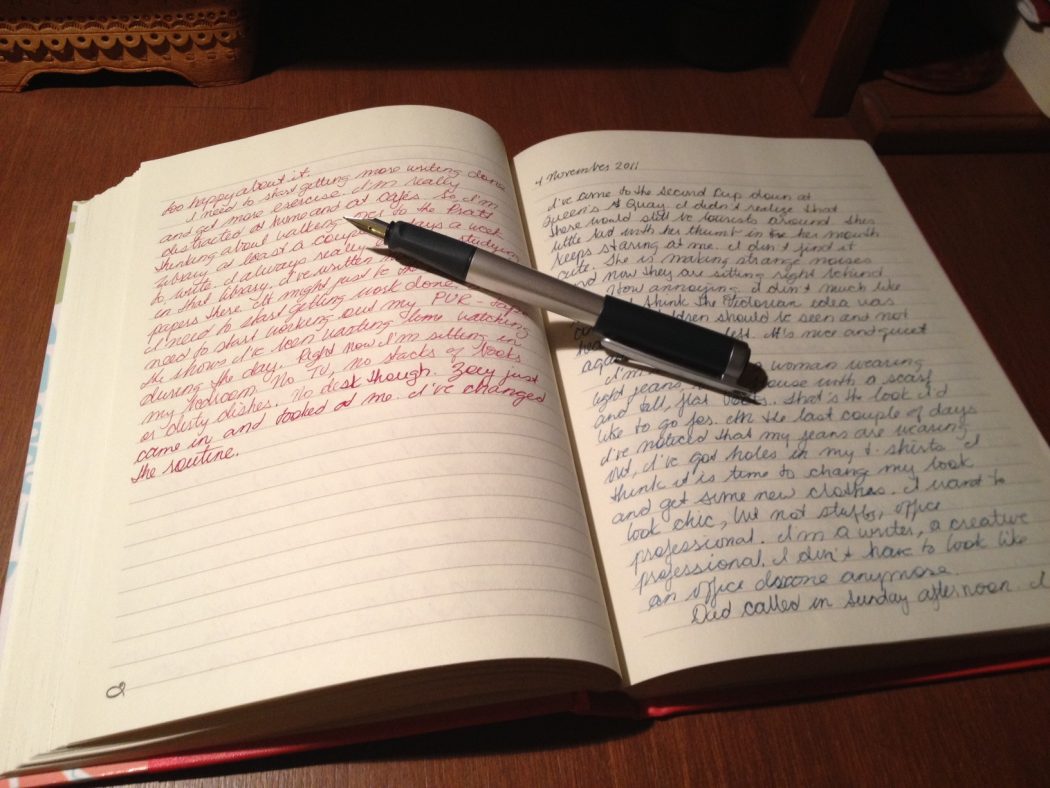 too happy about it.
I need to start getting more writing done
and get more exercise. I'm really
distracted at home and at cafés. So I'm
thinking about walking to the Pratt
library at least a couple days a week
to write. I always really studying
in that library. I've written
papers there. It might just be the
I need to start getting work done.
need to start working out my PVR-
the shows I've been wasting time watching
during the day. Right now I'm sitting in
my bedroom. No TV, no stacks of books
or dirty dishes. No desk though. Zoey just
came in and looked at me. I've changed
the routine.
4 November 2011
I've come to the Second Cup down at
Queen's Quay. I didn't realize that
there would still be tourists around. This
little kid with her thumb in her mouth
keeps staring at me. I don't find it
cute. She is making strange noises
and now they are sitting right behind
How annoying. I don't much like
think the Victorian idea was
children should be seen and not
It's nice and quiet
again
I'm woman wearing
light jeans, blouse with a scarf
and tall, flat boots. That's the look I'd
like to go for. In the last couple of days
I've noticed that my jeans are wearing
out, I've got holes in my t-shirts. I
think it is time to change my look
and get some new clothes. I want to
look chic, but not stuffy, office
professional. I'm a writer, a creative
professional. I don't have to look like
an office drone anymore.
Dad called on Sunday afternoon. I